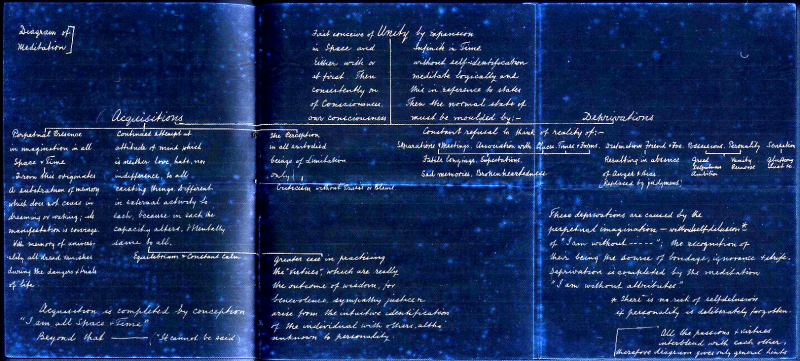 Diagram of
Meditation
First conceive of Unity by expansion
in Space and infinite in Time
Either with or without self-identification
at first. Then meditate logically and
consistently on this in reference to states
of Consciousness. Then the normal state of
our consciousness must be moulded by:-
Acquisitions
Deprivations
Perpetual Presence
in imagination in all
Space & Time
From this originates
A substratum of memory
which does not cease in
dreaming or waking; its
manifestation is courage.
With memory of univers-
ality all dread vanishes
during the dangers & trials
of life.
Continued attempt at
attitude of mind which
is neither love, hate, nor
indifference, to all
existing things. Different
in external activity to
each, because in each the
capacity alters. Mentally
same to all.
Equilibrium & Constant calm
The Perception
in all embodied
beings of Limitation
only
Criticism without Praise or Blame
Greater ease in practising
the "Virtues", which are really
the outcome of wisdom, for
benevolence sympathy justice &c
arise from the intuitive identification
of the individual with others, altho
unknown to personality
Acquisition is completed by conception
"I am all Space & Time"
Beyond that ——, "It cannot be said,
Constant refusal to think of reality of:-
Separations & Meetings. Association with Places. Times & Forms.
Futile longings. Expectations.
Sad memories. Brokenheartedness
Distinction Friend & Foe.
Resulting in absence
of Anger & bias
(Replaced by judgment)
Possessions.
Greed
Selfishness
Ambition
Personality
Vanity
Remorse
Sensation
Gluttony
Lust &c
These deprivations are caused by the
perpetual imagination — without self-delusion *
of "I am without -----"; the recognition of
their being the source of bondage, ignorance & strife.
Deprivation is completed by the meditation
"I am without attributes"
* There is no risk of self delusion
if personality is deliberately forgotten.
All the passions & virtues
interblend with each other;
therefore diagram gives only general hints